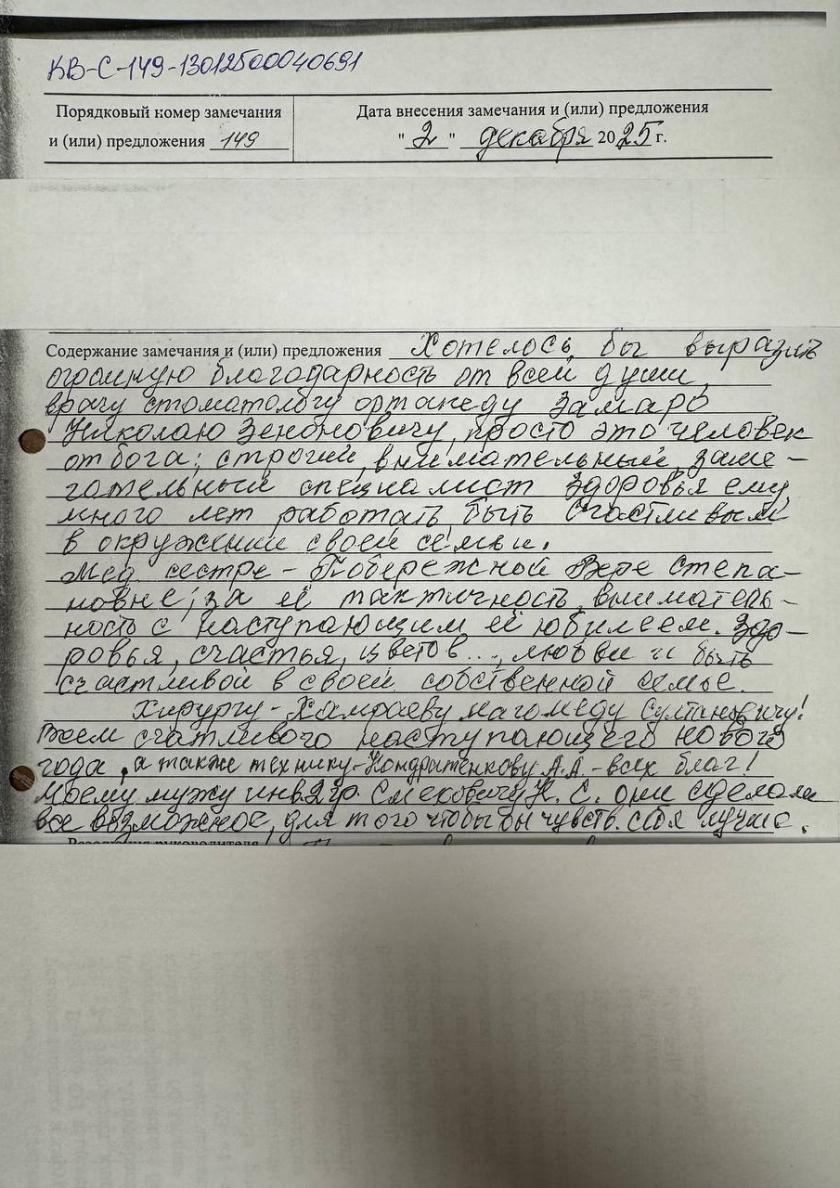 КВ-С-149-13012500040691
Порядковый номер замечания
и (или) предложения 149
Дата внесения замечания и (или) предложения
" 2 " декабря 2025 г.
Содержание замечания и (или) предложения Хотелось бы выразить
огромную благодарность от всей души,
врачу стоматологу ортапеду Замаро
Николаю Зеноновичу, просто это человек
от бога; строгий, внимательный заме-
чательный специалист Здоровья ему,
много лет работать, быть счастливым
в окружении своей семьи.
Мед. сестре - Побережной Вере Степа-
новне; за её тактичность, вниматель-
ность с наступающим её юбилеем. Здо-
ровья, счастья, цветов..., любви и быть
счастливой в своей собственной семье.
Хирургу - Хамраеву Магомеду Султановичу!
Всем счатливого наступающего нового
года, а также технику-Кондратенкову А.А. - всех благ!
Моему мужу инв 2 гр. С. они сделали
все возможное, для того чтобы он чувств. себя лучше.